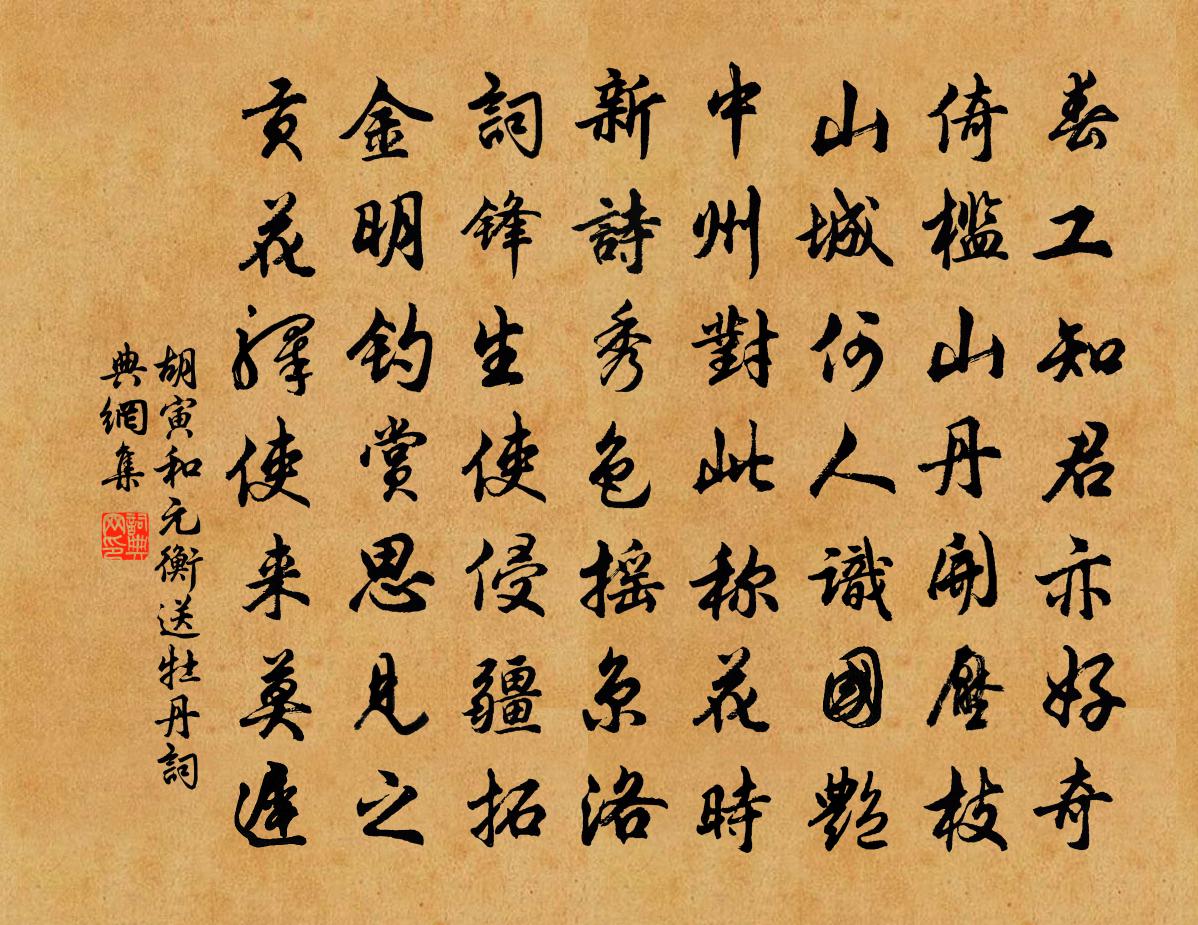 春工知君亦好奇
倚槛山丹開壓枝
山城何人識國艷
中州對此称花時
新詩秀色摇京洛
詞锋生使侵疆拓
金明钓賞思見之
贡花驿使来莫遲
胡寅和元衡送牡丹詞
典網集
詞典
网印